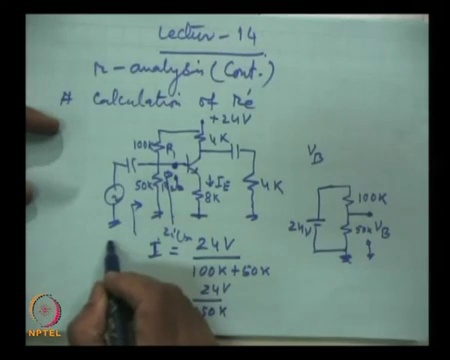 Lectur - 14
r - analysis (Cont.)
# Calculation of re'
+24V
100K R1
4K
VB
50K
↓ IE
8K
4K
24V
100K
50K VB
I = 24V
100K + 50K
24V
50K
NPTEL